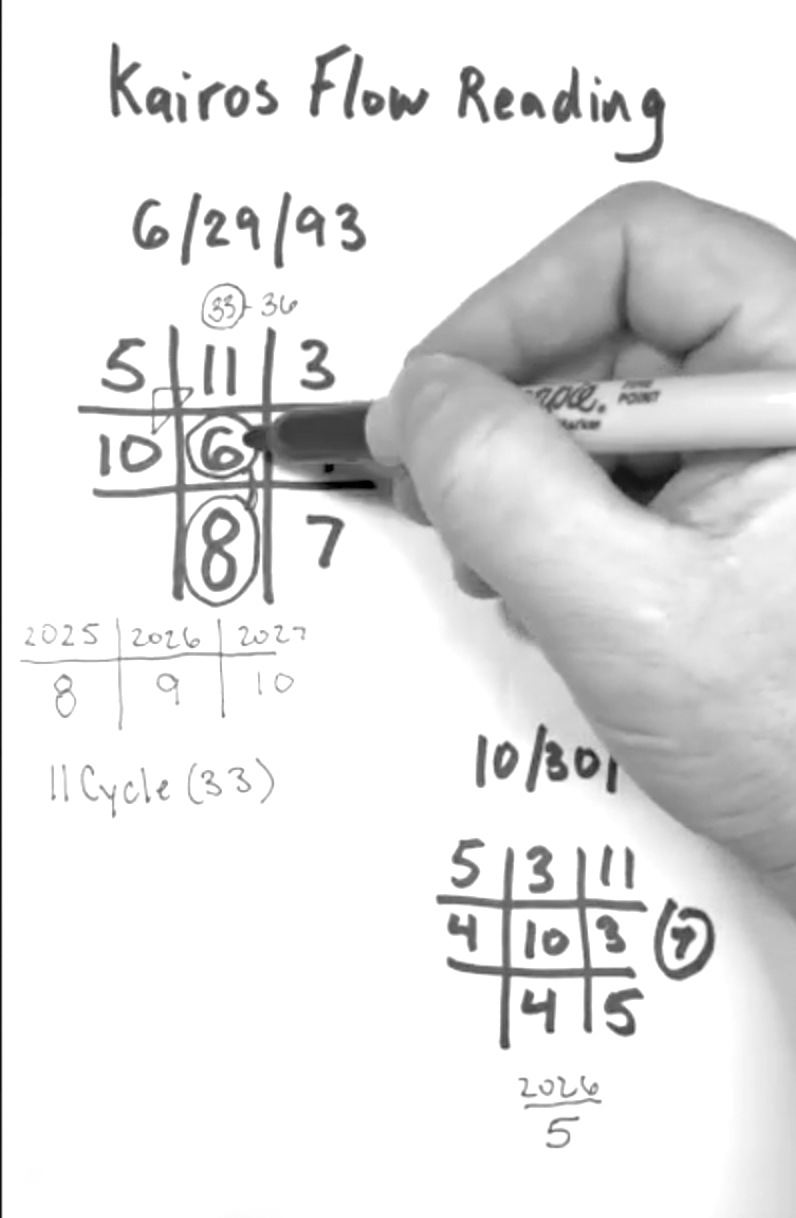 Kairos Flow Reading
6/29/93
33 - 36
5 11 3
10 6
8 7
2025 2026 2027
8 9 10
11 Cycle (33)
10/30/
5 3 11
4 10 3 7
4 5
2026
5
FINE
POINT